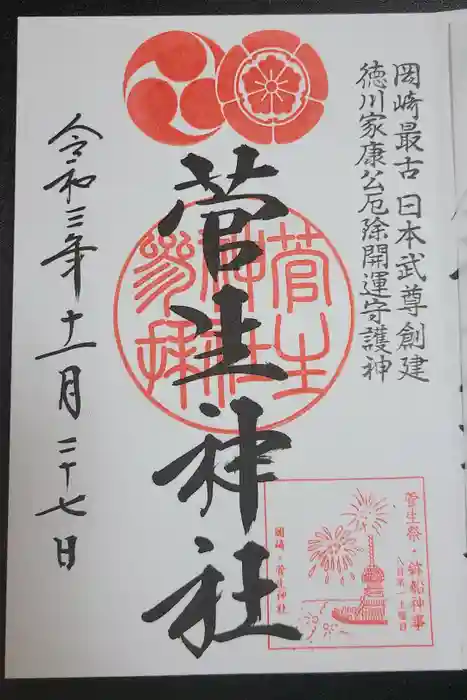 岡崎最古 日本武尊創建
徳川家康公厄除開運守護神
菅生神社
菅生
神社
参拝
令和三年十一月二十七日
菅生祭・鉾船神事
八月第一土曜日
岡崎・菅生神社